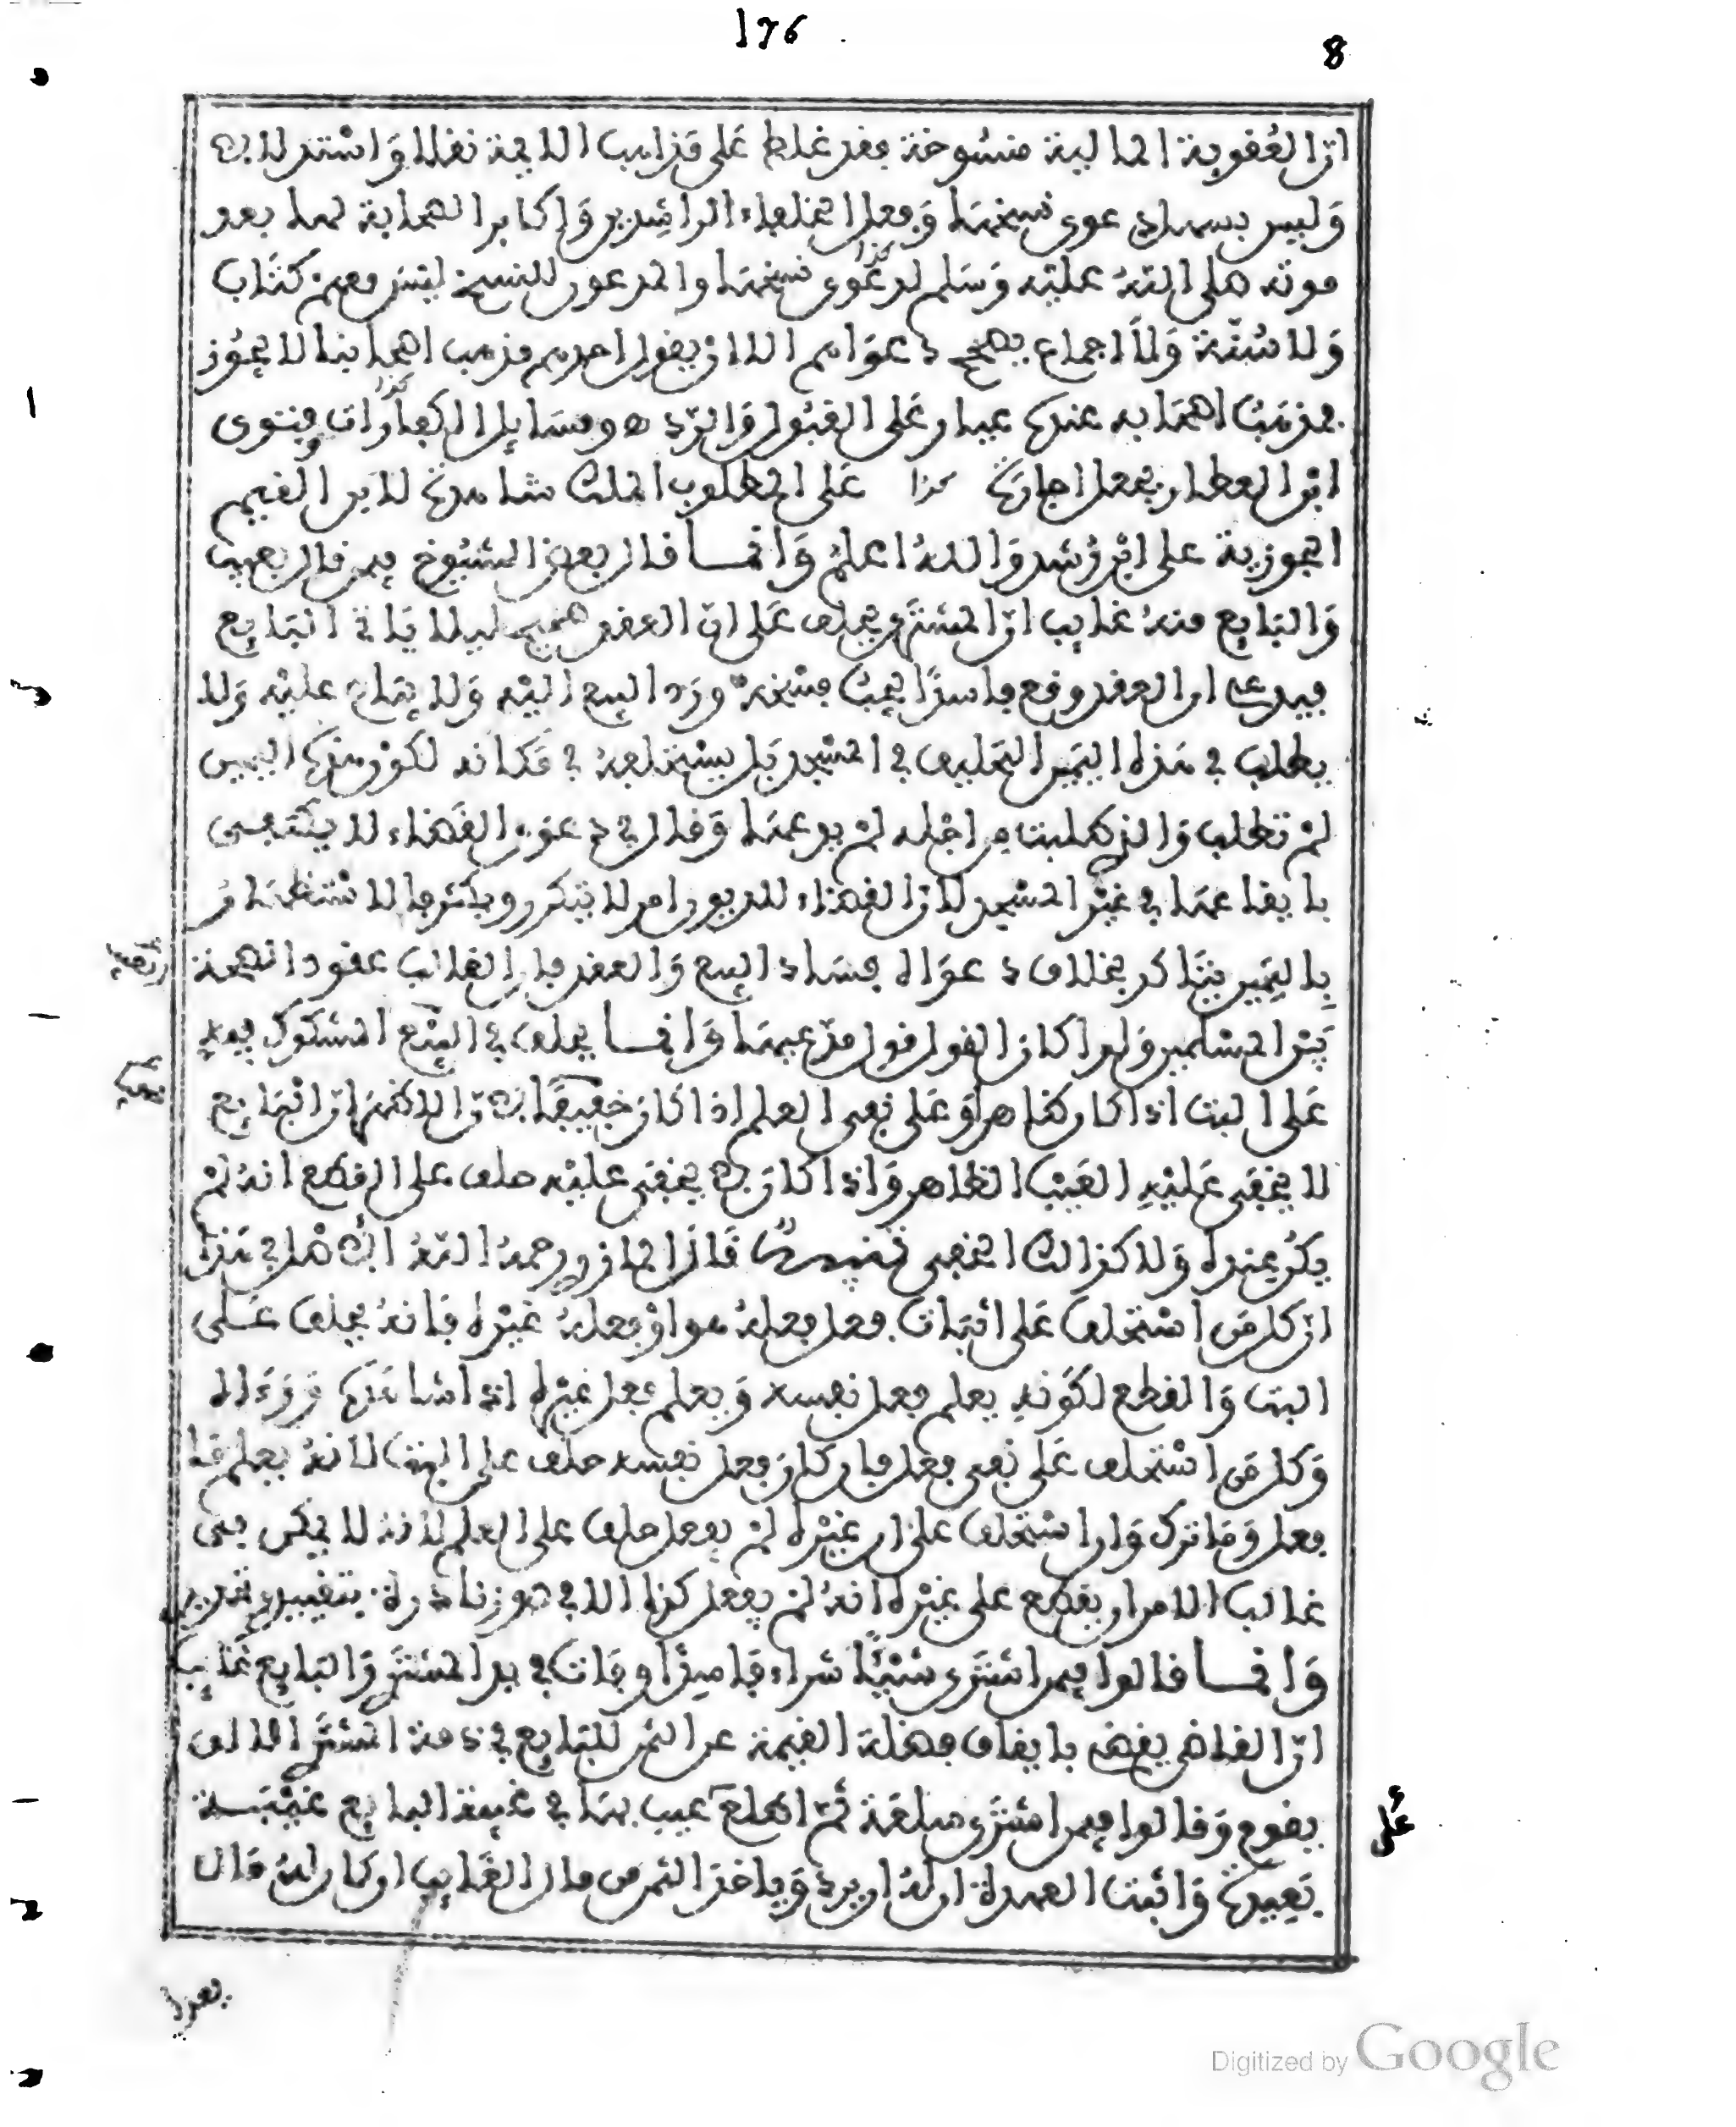 176
8
ان العقوبة المالية منسوخة فقد غلط على مذاهب الايمة نقلا واستدلالا
وليس يسهل دعوى نسخها وفعل الخلفاء الراشدين واكابر الصحابة لها بعد
موته صلى الله عليه وسلم لدعوى نسخها والمدعون للنسخ ليس معهم كتاب
كذا
ولا سنة ولا اجماع يصحح دعواهم الا ان يقول احدهم مذهب اصحابنا لا يجوز
فمذهب اصحابه عندك عيار على القبول والرد ومسايل الكفارات وفتوى
كذا
ابن العطار بجعل اجارة كذا على المطلوب الملد شاهدة لابن القيم
الجوزية على ابن رشد والله اعلم وانما قال بعض الشيوخ فيمن قال بعيب
والبايع منه غايب ان المشتري يحلف على ان العقد صحيح ليلا ياتي البايع
فيدعي ان العقد وقع فاسدا يجب فسخه ورد البيع اليه ولا يتاتى عليه ولا
يطلب في هذه اليمين التحليف في المسجد بل يستحلفه في مكانه لكون هذه اليمين
لم تطلب والذي طلبت من اجله لم يدعها وقال في دعوى القضاء لا يكتفى
بايقاعها في غير المسجد لان القضاء للديون امر لا يتكرر ويكثر فالاستظهار
باليمين يتاكد بخلاف دعواه فساد البيع والعقد فان الغالب عقود الصحة
بين المسلمين ولهذا كان القول قول مدعيها وانما يحلف في البيع المشكوك فيه
على البت اذا كان ظاهرا وعلى نفي العلم اذا كان خفيفا لان الاظهر ان البايع
لا يخفى عليه العيب الظاهر واذا كان لا يخفى عليه حلف على القطع انه لم
يكن عنده ولا كذالك الخفي تنبيه قال المازري رحمه الله الاصل في هذا
ان كل من استحلف على اثبات فعل فعله هو او فعله غيره فانه يحلف على
البت والقطع لكونه يعلم فعل نفسه ويعلم فعل غيره اذا شاهده ورءاه
وكل من استحلف على نفي فعل فان كان فعل نفسه حلف على البت لانه يعلم ما
فعل وما ترك وان استحلف على ان غيره لم يفعل حلف على العلم لانه لا يمكن في
غالب الامر ان يقطع على غيره انه لم يفعل كذا الا في صور نادرة بتقييد وتحديد
وانما قالوا فيمن اشترى شيئا شراء فاسدا وفات في يد المشتري والبايع غايب
ان القاضي يقضي بايقاف فضلة القيمة عن الثمن للبايع في ذمة المشتري الا ان
يقوم وقالوا فيمن اشترى سلعة ثم اطلع على عيب بها في غيبة البايع غيبة
على
بعيدة واثبت العهدة ان له ان يرد وياخذ الثمن من مال الغايب ان كان له مال
بعد ان